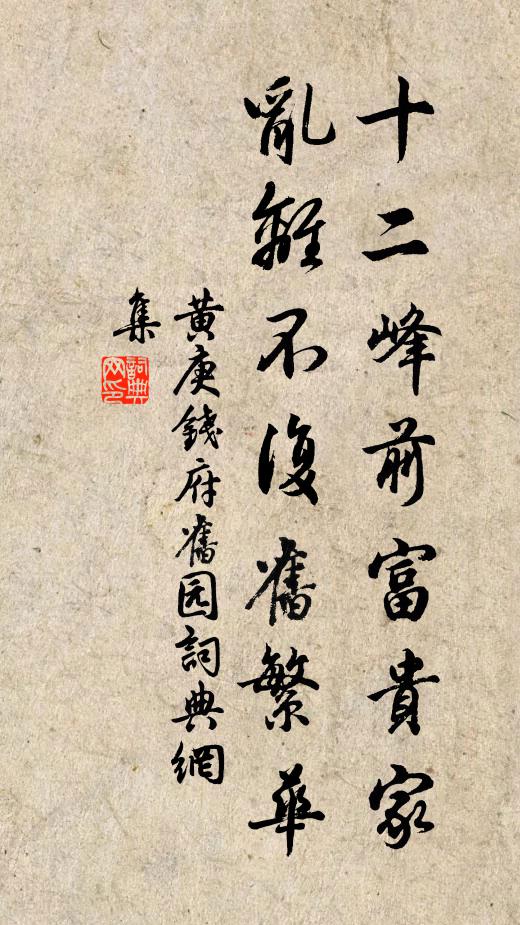 十二峰前富貴家
亂離不復舊繁華
黃庚錢府舊园詞典網
集
詞典
网印